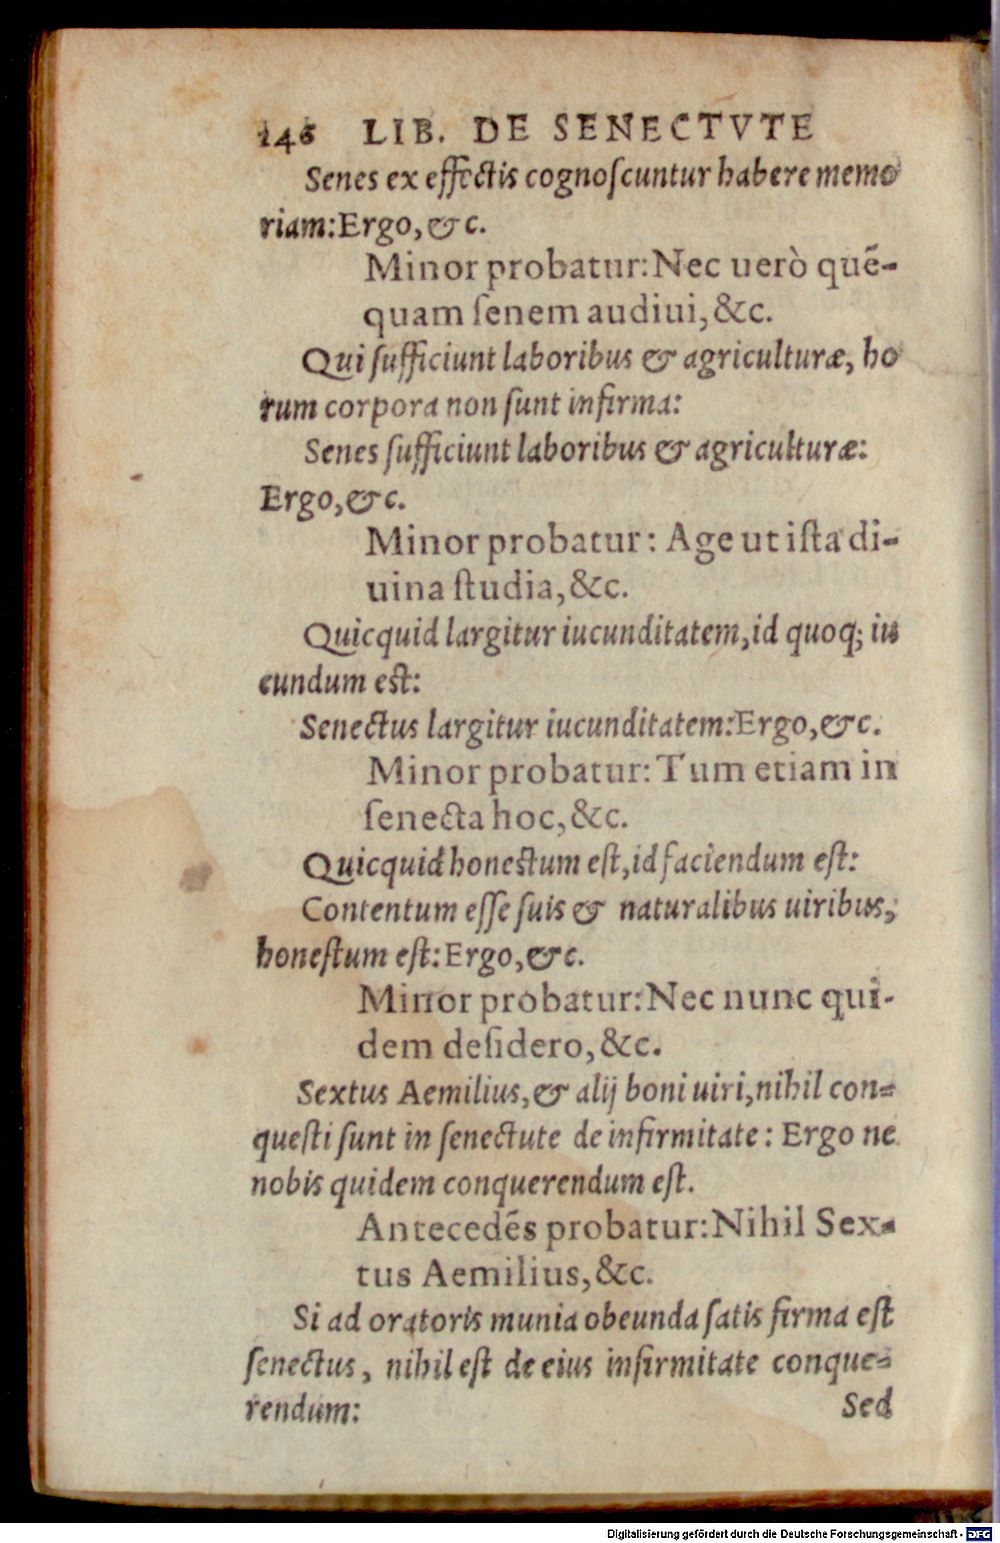 146 LIB. DE SENECTVTE
Senes ex effectis cognoſcuntur habere memo
riam: Ergo, &c.
Minor probatur: Nec uerò quē-
quam ſenem audiui, &c.
Qui ſufficiunt laboribus & agriculturæ, ho
rum corpora non ſunt infirma:
Senes ſufficiunt laboribus & agriculturæ:
Ergo, &c.
Minor probatur: Age ut iſta di-
uina ſtudia, &c.
Quicquid largitur iucunditatem, id quoq; iu
cundum eſt:
Senectus largitur iucunditatem: Ergo, &c.
Minor probatur: Tum etiam in
ſenecta hoc, &c.
Quicquid honeſtum eſt, id faciendum eſt:
Contentum eſſe ſuis & naturalibus uiribus,
honeſtum eſt: Ergo, &c.
Minor probatur: Nec nunc qui-
dem deſidero, &c.
Sextus Aemilius, & alij boni uiri, nihil con-
queſti ſunt in ſenectute de infirmitate: Ergo ne
nobis quidem conquerendum eſt.
Antecedēs probatur: Nihil Sex-
tus Aemilius, &c.
Si ad oratoris munia obeunda ſatis firma eſt
ſenectus, nihil eſt de eius infirmitate conque-
rendum:
Sed
Digitalisierung gefördert durch die Deutsche Forschungsgemeinschaft - DFG